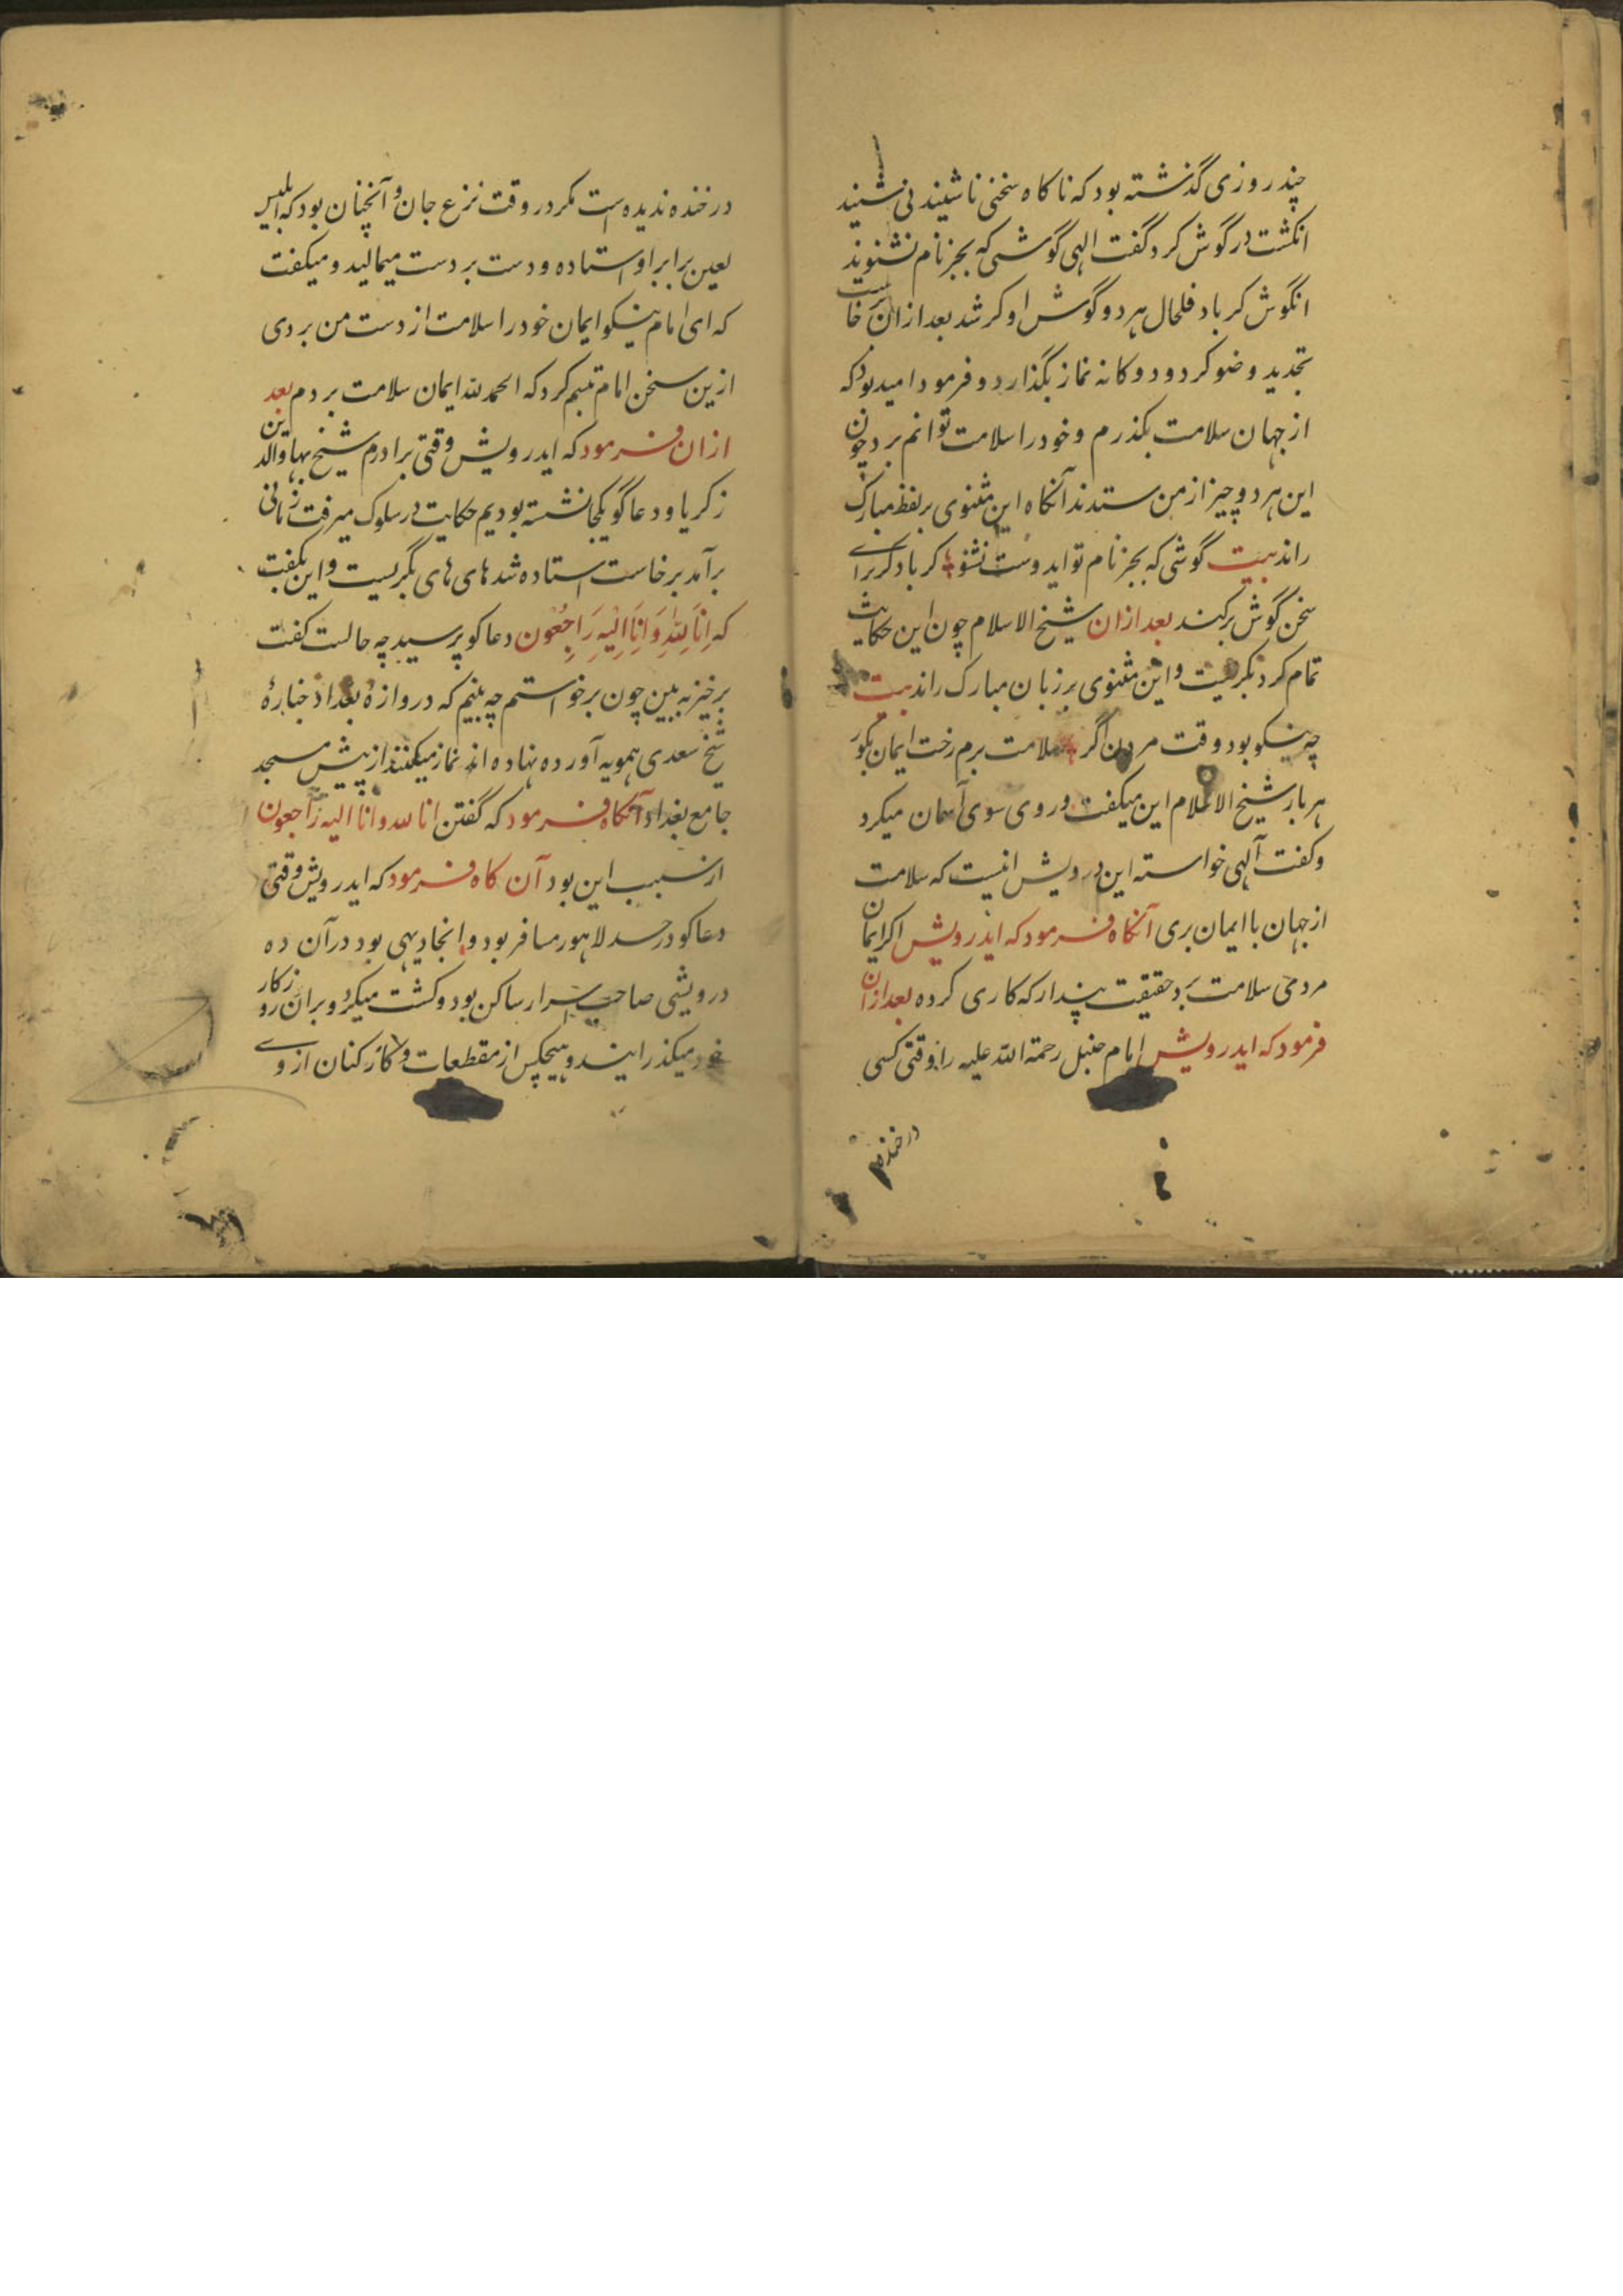 چند روزی گذشته بود که ناکاه سخنی ناشنیدنی شنید
انکشت در گوش کرد گفت الهی گوشی که بجز نام نشنوند
انگوش کر باد فلحال هر دو گوش او کر شد بعد ازان خاست
تجدید وضو کرد و دوکانه نماز بگذارد و فرمود امید بود که
از جهان سلامت بکذرم و خود را سلامت توانم برد چون
این هر دو چیز از من ستدند آنکاه این مثنوی بر لفظ مبارک
راند بیت گوشی که بجز نام تو ایدوست نشنود کر باد کر برای
سخن گوش برکند بعد ازان شیخ الاسلام چون این حکایت
تمام کرد بکریست و این مثنوی بر زبان مبارک راند بیت
چه نیکو بود وقت مردن اگر سلامت برم رخت ایمان بکور
هر بار شیخ الاسلام این میکفت و روی سوی آسمان میکرد
و کفت آلهی خواسته این درویش انیست که سلامت
از جهان با ایمان بری آنکاه فرمود که ایدرویش اکر ایمان
مردمی سلامت برد حقیقت پندار که کاری کرده بعد ازان
فرمود که ایدرویش امام حنبل رحمة الله علیه را وقتی کسی
در خنده
در خنده ندیده است مکر در وقت نزع جان و آنچنان بود که ابلیس
لعین برابر او استاده و دست بر دست میمالید و میکفت
که ای امام نیکو ایمان خود را سلامت از دست من بردی
ازین سخن امام تبسم کرد که الحمد لله ایمان سلامت بردم بعد
ازان فرمود که ایدرویش وقتی برادرم شیخ بهاوالدین
زکریا و دعاگو یکجا نشسته بودیم حکایت در سلوک میرفت زمانی
برآمد برخاست استاده شد های های بگریست و این بکفت
که اِنَّا لِلّٰهِ وَ اِنَّا اِلَیْهِ رَاجِعُون دعاکو پرسید چه حالست کفت
برخیز به بین چون برخواستم چه بینم که دروازه بغداد جنازهٔ
شیخ سعدی همویه آورده نهاده اند نماز میکنند از پیش مسجد
جامع بغداد آنکاه فرمود که گفتن انا لله و انا الیه راجعون
از سبب این بود آن کاه فرمود که ایدرویش وقتی
دعاکو در حد لاهور مسافر بود و انجا دیهی بود در آن ده
درویشی صاحب اسرار ساکن بود و کشت میکرد و بران روزکار
خود میکذرانید و هیچکس از مقطعات و کارکنان از وی